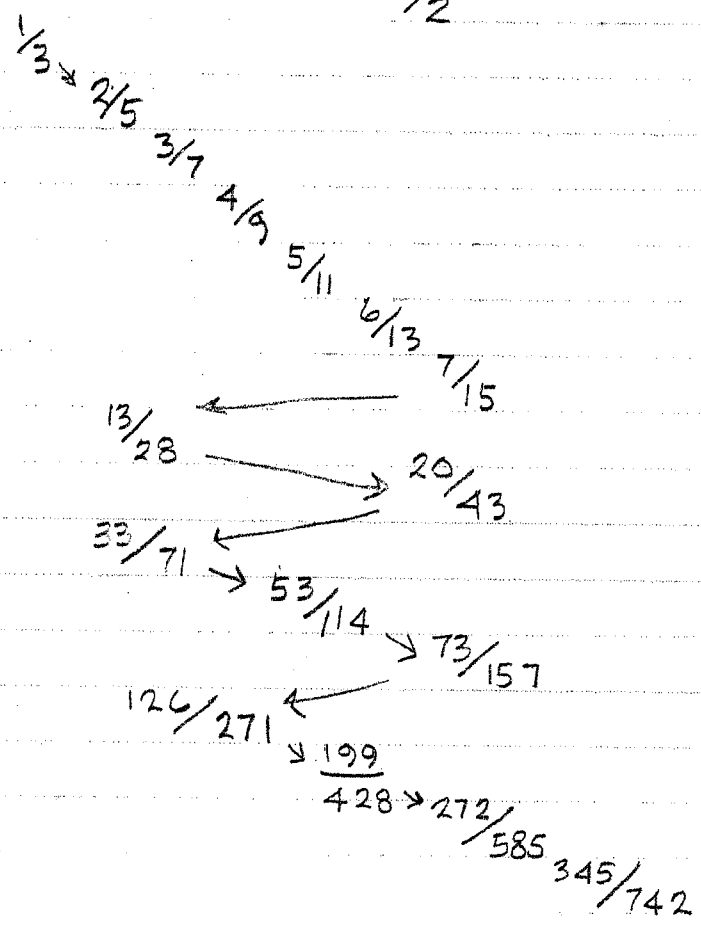 /2
1/3
2/5
3/7
4/9
5/11
6/13
7/15
13/28
20/43
33/71
53/114
73/157
126/271
199
428
272/585
345/742